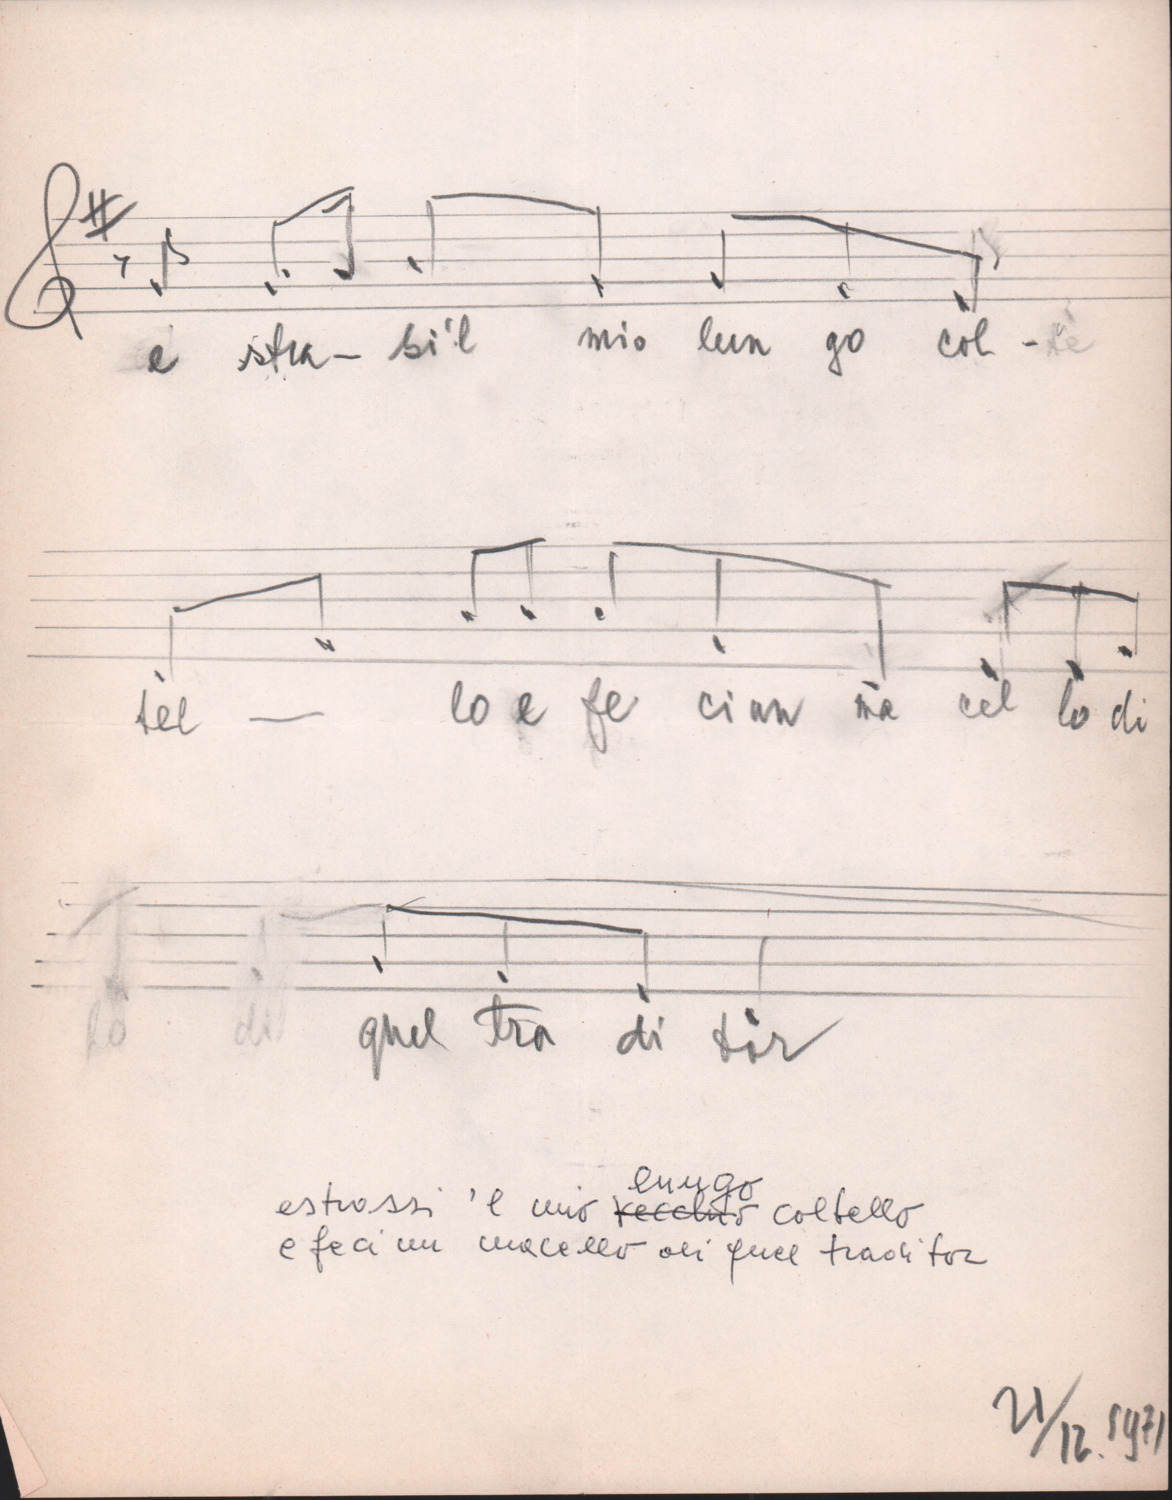 e stra- si'l mio lun go col - tè
tèl — lo e fe ci un ma cèl lo di
lo di quel tra di tòr
lungo
estrassi 'l mio vecchio coltello
e feci un macello di quel traditor
21/12. 1971